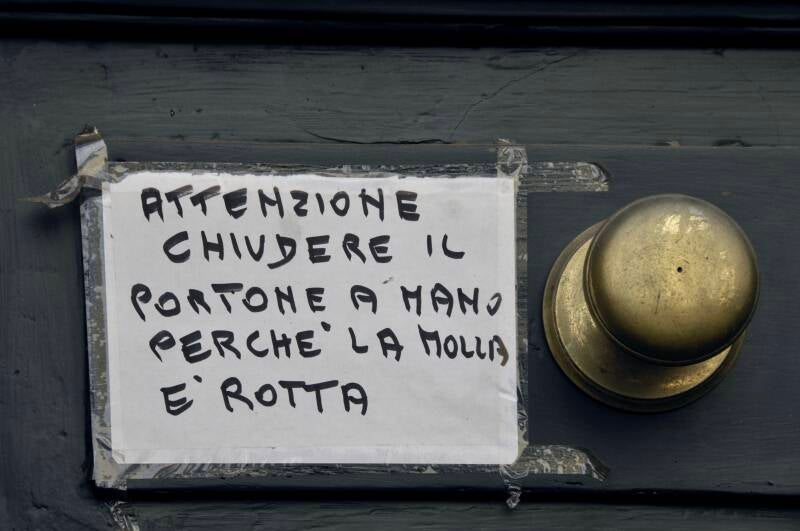 ATTENZIONE
CHIUDERE IL
PORTONE A MANO
PERCHE' LA MOLLA
E' ROTTA